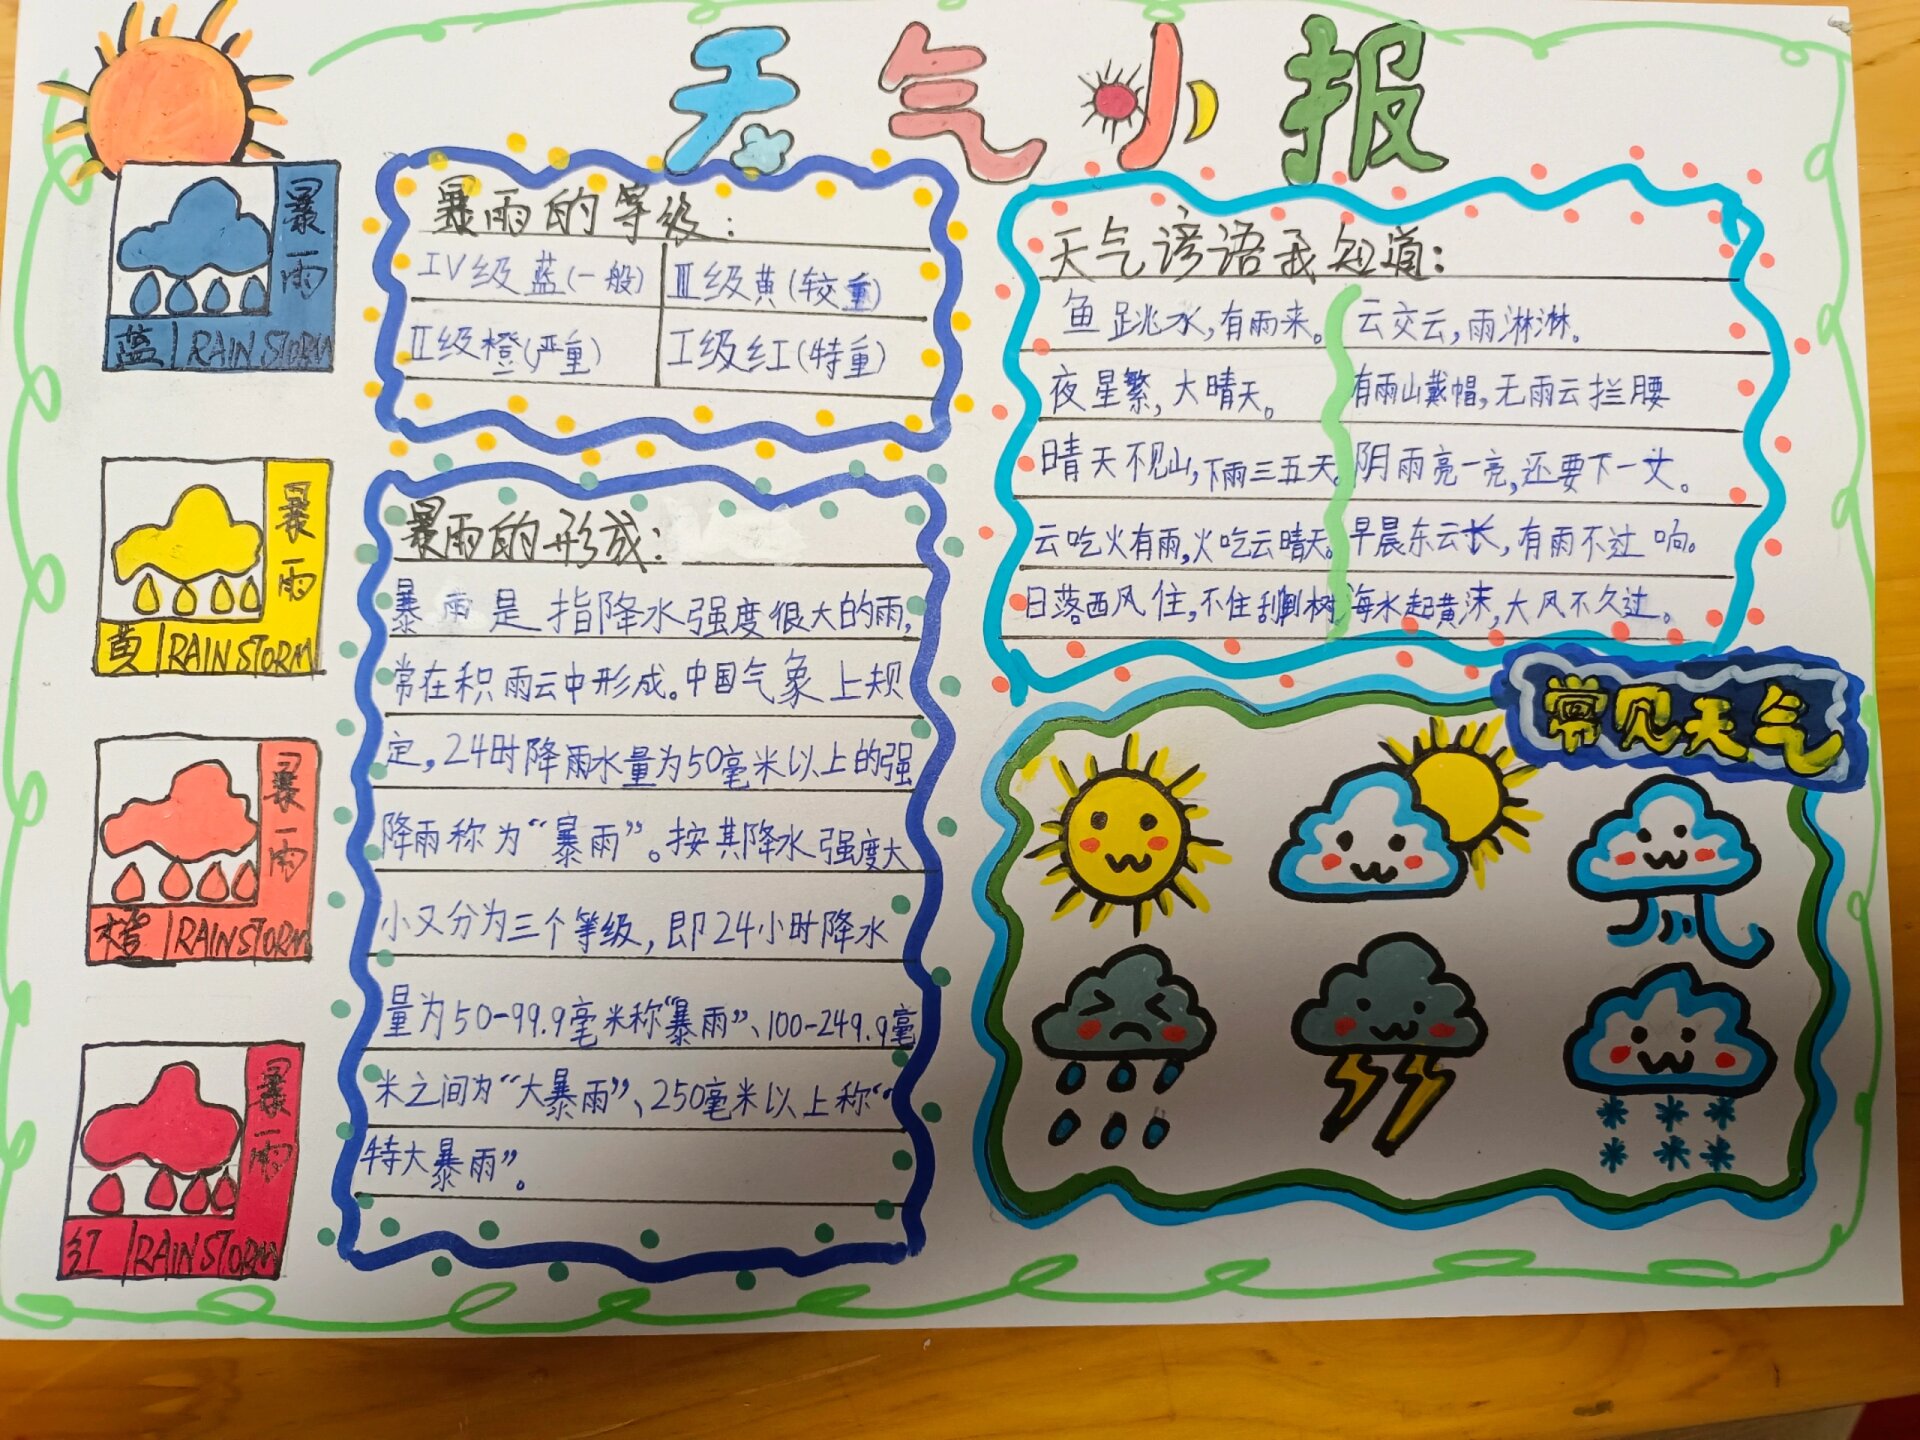 天气小报
暴雨
蓝 RAINSTORM
暴雨
黄 RAINSTORM
暴雨
橙 RAINSTORM
暴雨
红 RAINSTORM
暴雨的等级：
IV级蓝(一般) III级黄(较重)
II级橙(严重) I级红(特重)
暴雨的形成：
暴雨是指降水强度很大的雨,
常在积雨云中形成。中国气象上规
定,24时降雨水量为50毫米以上的强
降雨称为“暴雨”。按其降水强度大
小又分为三个等级,即24小时降水
量为50-99.9毫米称“暴雨”、100-249.9毫
米之间为“大暴雨”、250毫米以上称“
特大暴雨”。
天气谚语我知道：
鱼跳水,有雨来。
夜星繁,大晴天。
晴天不见山,下雨三五天。
云吃火有雨,火吃云晴天。
日落西风住,不住刮倒树
云交云,雨淋淋。
有雨山戴帽,无雨云拦腰
阴雨亮一亮,还要下一丈。
早晨东云长,有雨不过响。
海水起黄沫,大风不久过。
常见天气